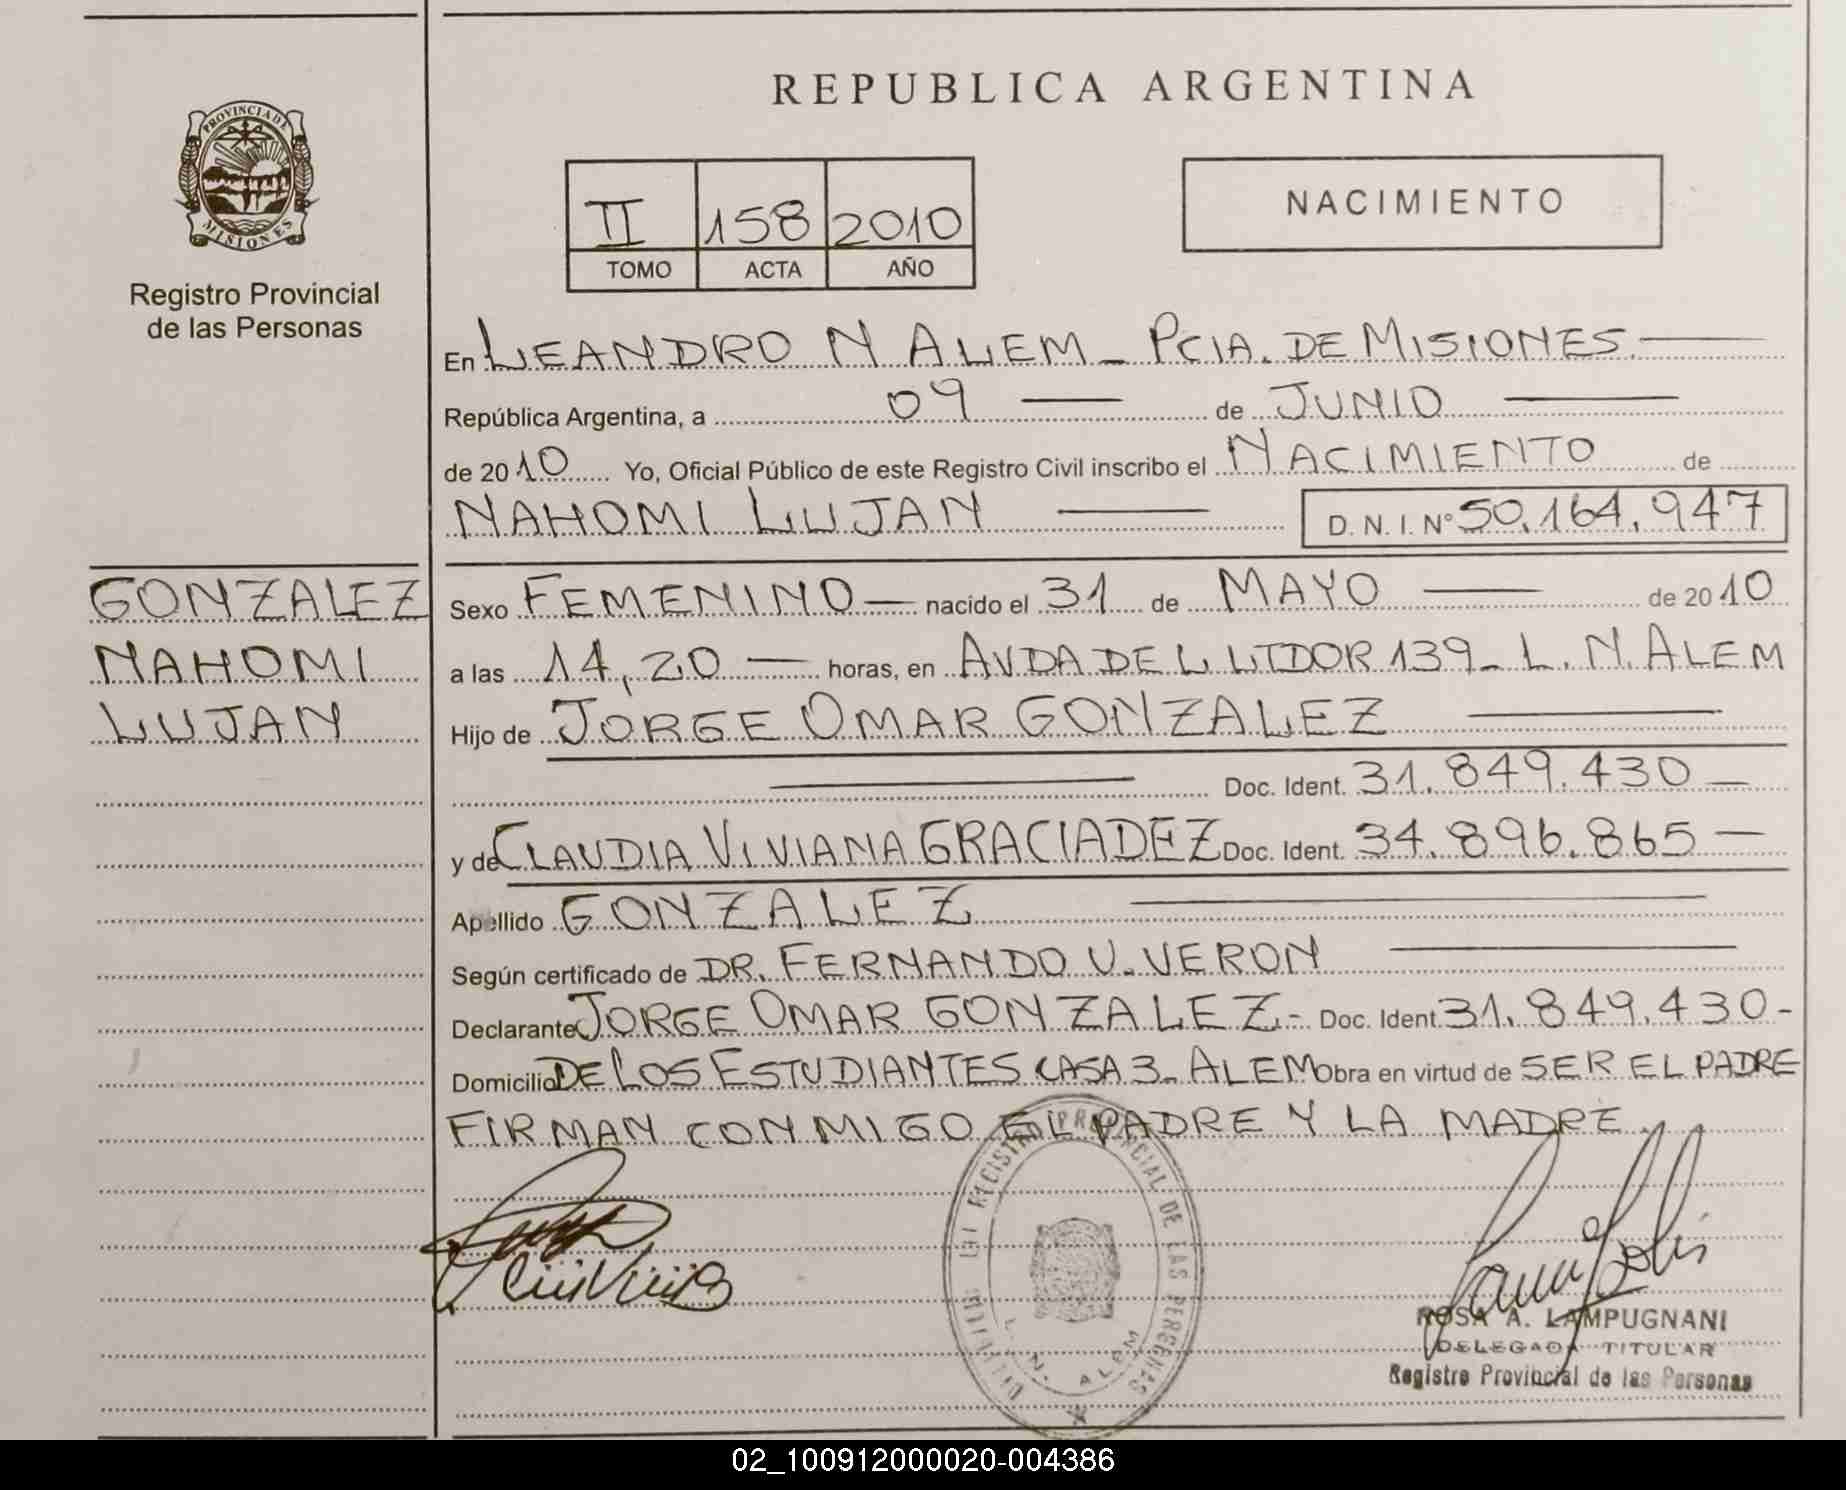 REPUBLICA ARGENTINA
PROVINCIA DE
MISIONES
Registro Provincial
de las Personas
II 158 2010
TOMO ACTA AÑO
NACIMIENTO
En LEANDRO N ALEM - PCIA. DE MISIONES.
República Argentina, a 09 de JUNIO
de 2010 Yo, Oficial Público de este Registro Civil inscribo el NACIMIENTO de
NAHOMI LUJAN D. N. I. Nº 50.164.947
GONZALEZ
NAHOMI
LUJAN
Sexo FEMENINO nacido el 31 de MAYO de 2010
a las 14,20 horas, en AVDA DE L LTDOR 139 - L. N. ALEM
Hijo de JORGE OMAR GONZALEZ
Doc. Ident. 31.849.430
y de CLAUDIA VIVIANA GRACIADEZ Doc. Ident. 34.896.865
Apellido GONZALEZ
Según certificado de DR. FERNANDO V. VERON
Declarante JORGE OMAR GONZALEZ - Doc. Ident. 31.849.430 -
Domicilio DE LOS ESTUDIANTES CASA 3 - ALEM Obra en virtud de SER EL PADRE
FIRMAN CONMIGO EL PADRE Y LA MADRE.
REGISTRO PROVINCIAL DE LAS PERSONAS
L. N. ALEM
ROSA A. LAMPUGNANI
DELEGADA TITULAR
Registro Provincial de las Personas
02_100912000020-004386